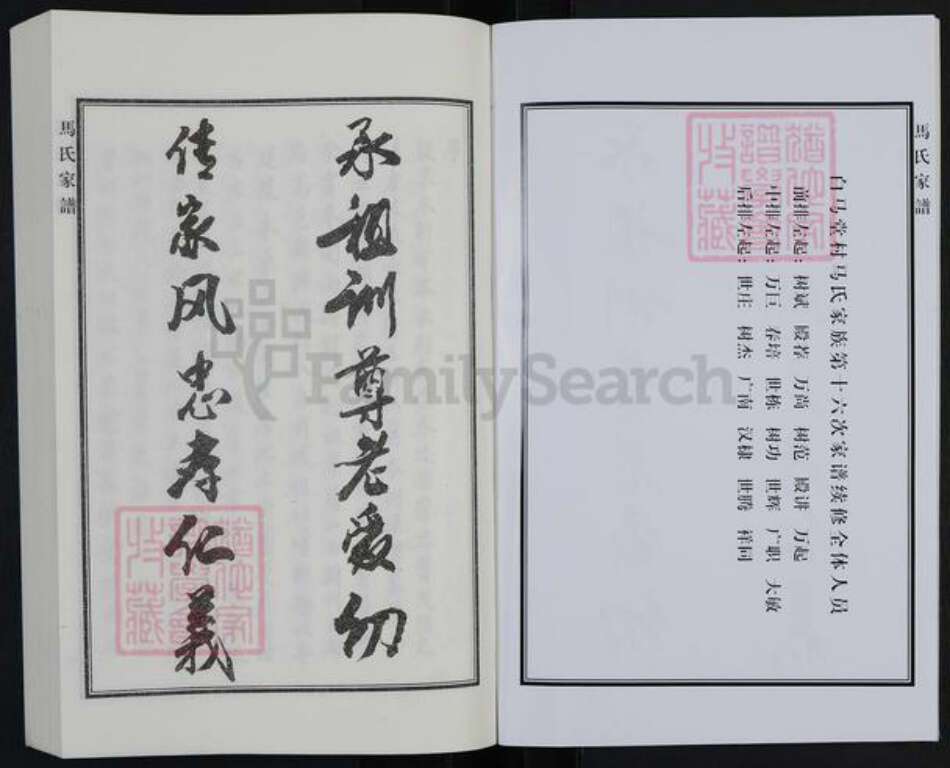 馬氏家譜
白马堂村马氏家族第十六次家谱续修全体人员
前排左起：树斌 殿荐 万尚 树范 殿讲 万起
中排左起：万巨 春培 世栋 树功 世辉 广职 天敏
后排左起：世庄 树杰 广南 汉棣 世腾 祥同
承祖训尊老爱幼
传家风忠孝仁義
馬氏家譜
FamilySearch